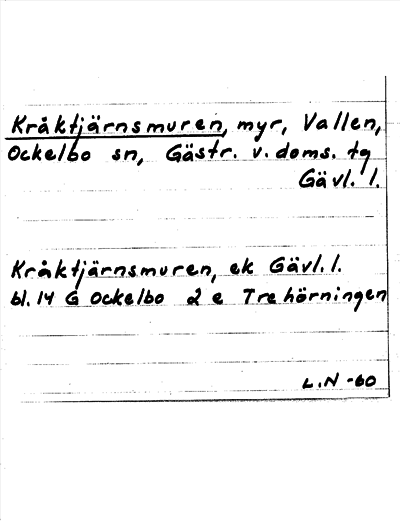 Kråktjärnsmuren, myr, Vallen,
Ockelbo sn, Gästr. v. doms. tg
Gävl. l.
Kråktjärnsmuren, ek Gävl. l.
bl. 14 G Ockelbo 2 e Trehörningen
L.N -60